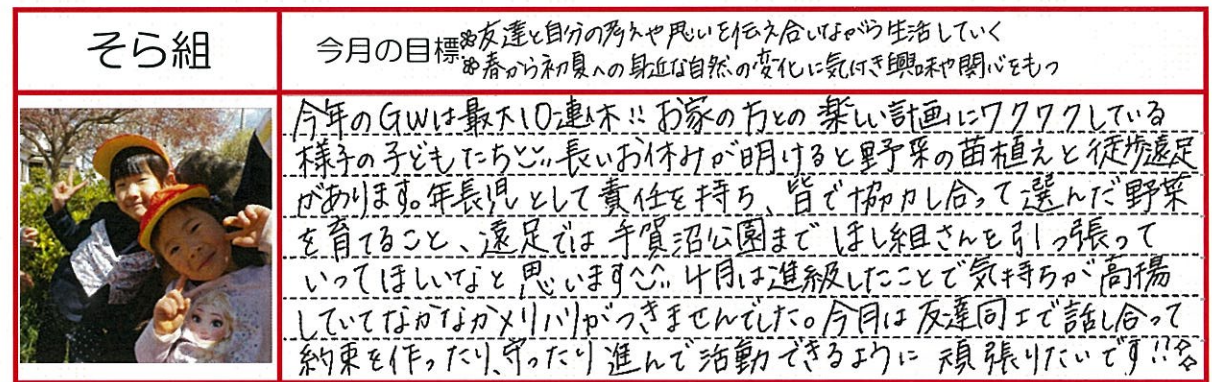 そら組
今月の目標
❀友達と自分の考えや思いを伝え合いながら生活していく
❀春から初夏への身近な自然の変化に気付き興味や関心をもつ
今年のGWは最大10連休!! お家の方との楽しい計画にワクワクしている
様子の子どもたち 長いお休みが明けると野菜の苗植えと徒歩遠足
があります。年長児として責任を持ち、皆で協力し合って選んだ野菜
を育てること、遠足では手賀沼公園までほし組さんを引っ張って
いってほしいなと思います 4月は進級したことで気持ちが高揚
していてなかなかメリハリがつきませんでした。今月は友達同士で話し合って
約束を作ったり、守ったり進んで活動できるように頑張りたいです!!